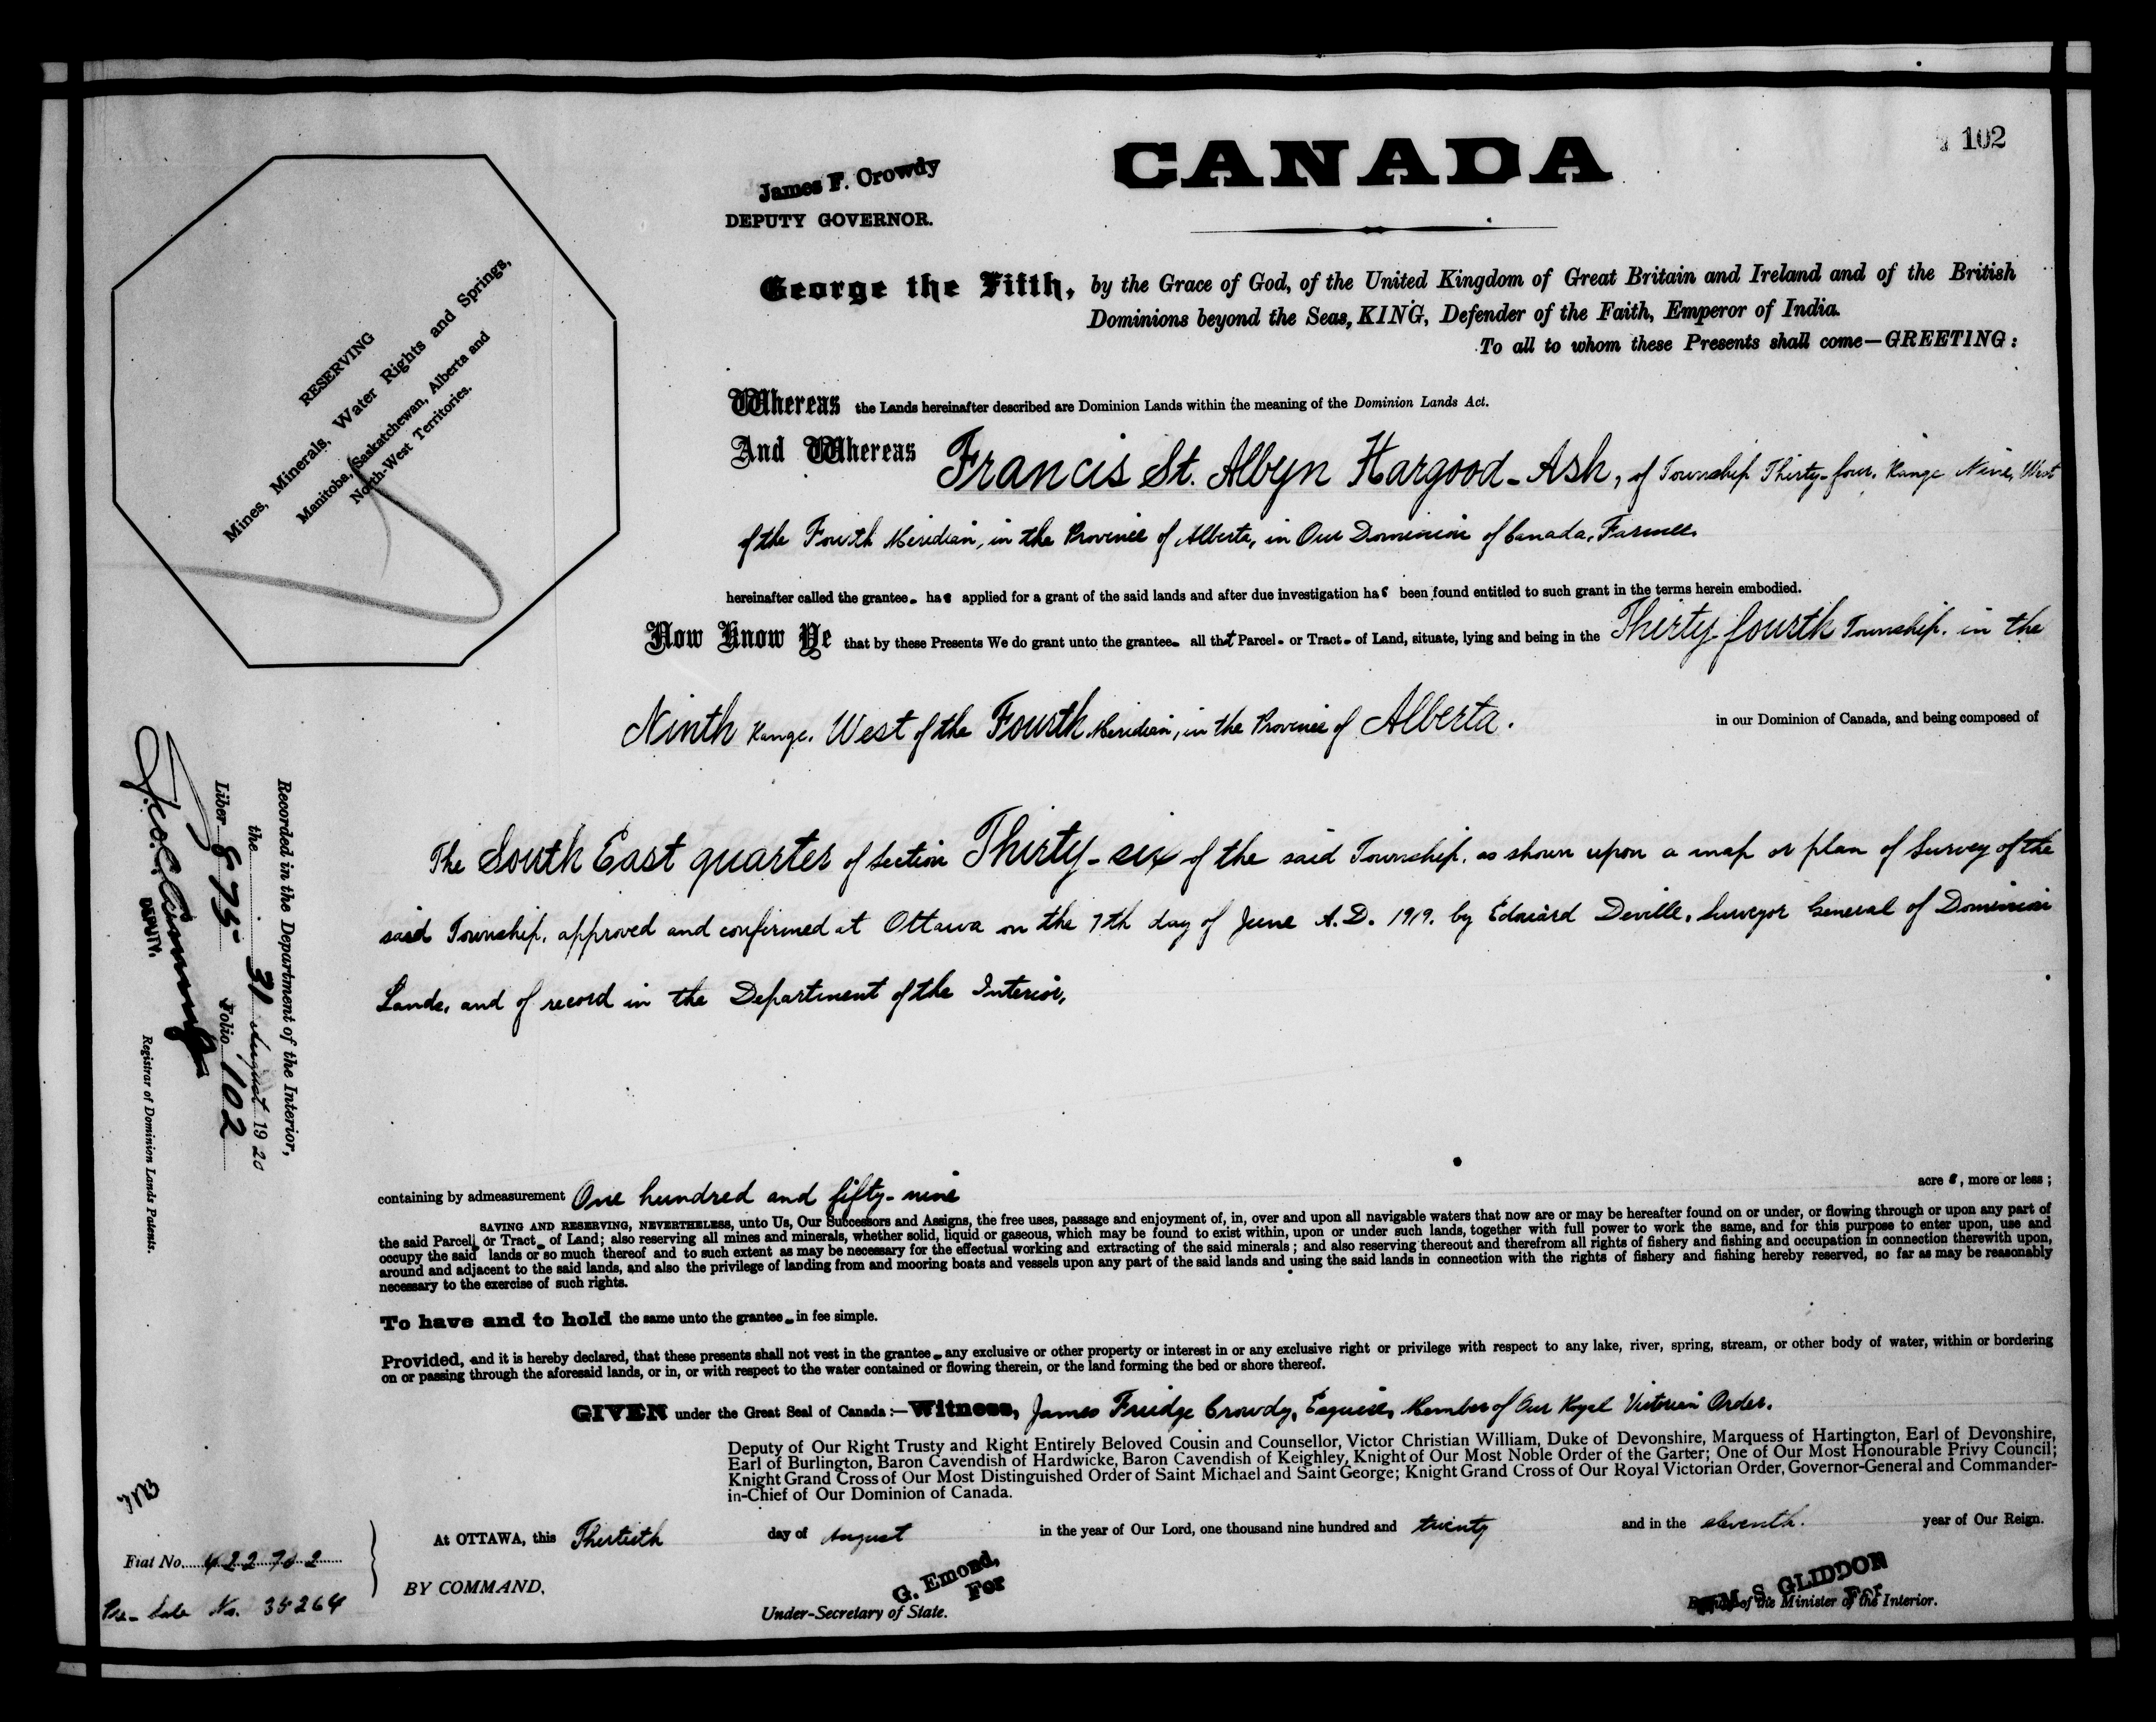 102
CANADA
James F. Crowdy
DEPUTY GOVERNOR.
George the Fifth, by the Grace of God, of the United Kingdom of Great Britain and Ireland and of the British
Dominions beyond the Seas, KING, Defender of the Faith, Emperor of India.
To all to whom these Presents shall come—GREETING:
RESERVING
Mines, Minerals, Water Rights and Springs,
Manitoba, Saskatchewan, Alberta and
North-West Territories.
Whereas the Lands hereinafter described are Dominion Lands within the meaning of the Dominion Lands Act.
And Whereas Francis St. Albyn Hargood-Ash, of Township Thirty-four, Range Nine, West
of the Fourth Meridian, in the Province of Alberta, in Our Dominion of Canada, Farmer,
hereinafter called the grantee has applied for a grant of the said lands and after due investigation has been found entitled to such grant in the terms herein embodied.
Now Know Ye that by these Presents We do grant unto the grantee all that Parcel or Tract of Land, situate, lying and being in the Thirty-fourth Township, in the
Ninth Range, West of the Fourth Meridian, in the Province of Alberta. in our Dominion of Canada, and being composed of
The South East quarter of Section Thirty-six of the said Township, as shown upon a map or plan of Survey of the
said Township, approved and confirmed at Ottawa on the 7th day of June A.D. 1919, by Edouard Deville, Surveyor General of Dominion
Lands, and of record in the Department of the Interior,
Recorded in the Department of the Interior,
the 31 August 1920
Liber 875 Folio 102
DEPUTY. Registrar of Dominion Lands Patents.
containing by admeasurement One hundred and fifty-nine acres, more or less;
SAVING AND RESERVING, NEVERTHELESS, unto Us, Our Successors and Assigns, the free uses, passage and enjoyment of, in, over and upon all navigable waters that now are or may be hereafter found on or under, or flowing through or upon any part of
the said Parcel or Tract of Land; also reserving all mines and minerals, whether solid, liquid or gaseous, which may be found to exist within, upon or under such lands, together with full power to work the same, and for this purpose to enter upon, use and
occupy the said lands or so much thereof and to such extent as may be necessary for the effectual working and extracting of the said minerals; and also reserving thereout and therefrom all rights of fishery and fishing and occupation in connection therewith upon,
around and adjacent to the said lands, and also the privilege of landing from and mooring boats and vessels upon any part of the said lands and using the said lands in connection with the rights of fishery and fishing hereby reserved, so far as may be reasonably
necessary to the exercise of such rights.
To have and to hold the same unto the grantee in fee simple.
Provided, and it is hereby declared, that these presents shall not vest in the grantee any exclusive or other property or interest in or any exclusive right or privilege with respect to any lake, river, spring, stream, or other body of water, within or bordering
on or passing through the aforesaid lands, or in, or with respect to the water contained or flowing therein, or the land forming the bed or shore thereof.
GIVEN under the Great Seal of Canada:—Witness, James Fridge Crowdy, Esquire, Member of Our Royal Victorian Order.
Deputy of Our Right Trusty and Right Entirely Beloved Cousin and Counsellor, Victor Christian William, Duke of Devonshire, Marquess of Hartington, Earl of Devonshire,
Earl of Burlington, Baron Cavendish of Hardwicke, Baron Cavendish of Keighley, Knight of Our Most Noble Order of the Garter; One of Our Most Honourable Privy Council;
Knight Grand Cross of Our Most Distinguished Order of Saint Michael and Saint George; Knight Grand Cross of Our Royal Victorian Order, Governor-General and Commander-
in-Chief of Our Dominion of Canada.
At OTTAWA, this Thirtieth day of August in the year of Our Lord, one thousand nine hundred and twenty and in the eleventh. year of Our Reign.
Fiat No. 422702
BY COMMAND,
Pre-Sale No. 35264
G. Emond,
For
Under-Secretary of State.
WM. S. GLIDDON
For
Deputy of the Minister of the Interior.